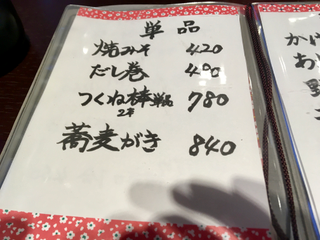 単品
焼みそ 420
だし巻 480
つくね棒 780
2本
蕎麦がき 840
かけ
あ
野